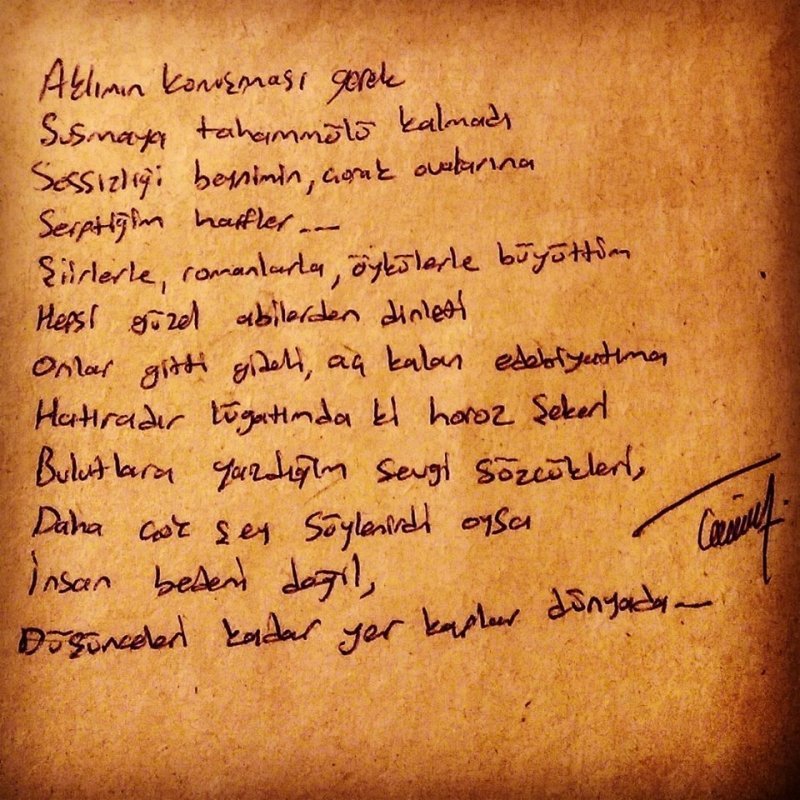 Aklımın konuşması gerek
Susmaya tahammülü kalmadı
Sessizliği beynimin, çorak ovalarına
Serptiğim harfler...
Şiirlerle, romanlarla, öykülerle büyüttüm
Hepsi güzel abilerden dinleti
Onlar gitti gideli, aç kalan edebiyatıma
Hatıradır lügatımda ki horoz şekeri
Bulutlara yazdığım sevgi sözcükleri,
Daha çok şey söylenirdi oysa
İnsan bedeni değil,
Düşünceleri kadar yer kaplar dünyada...